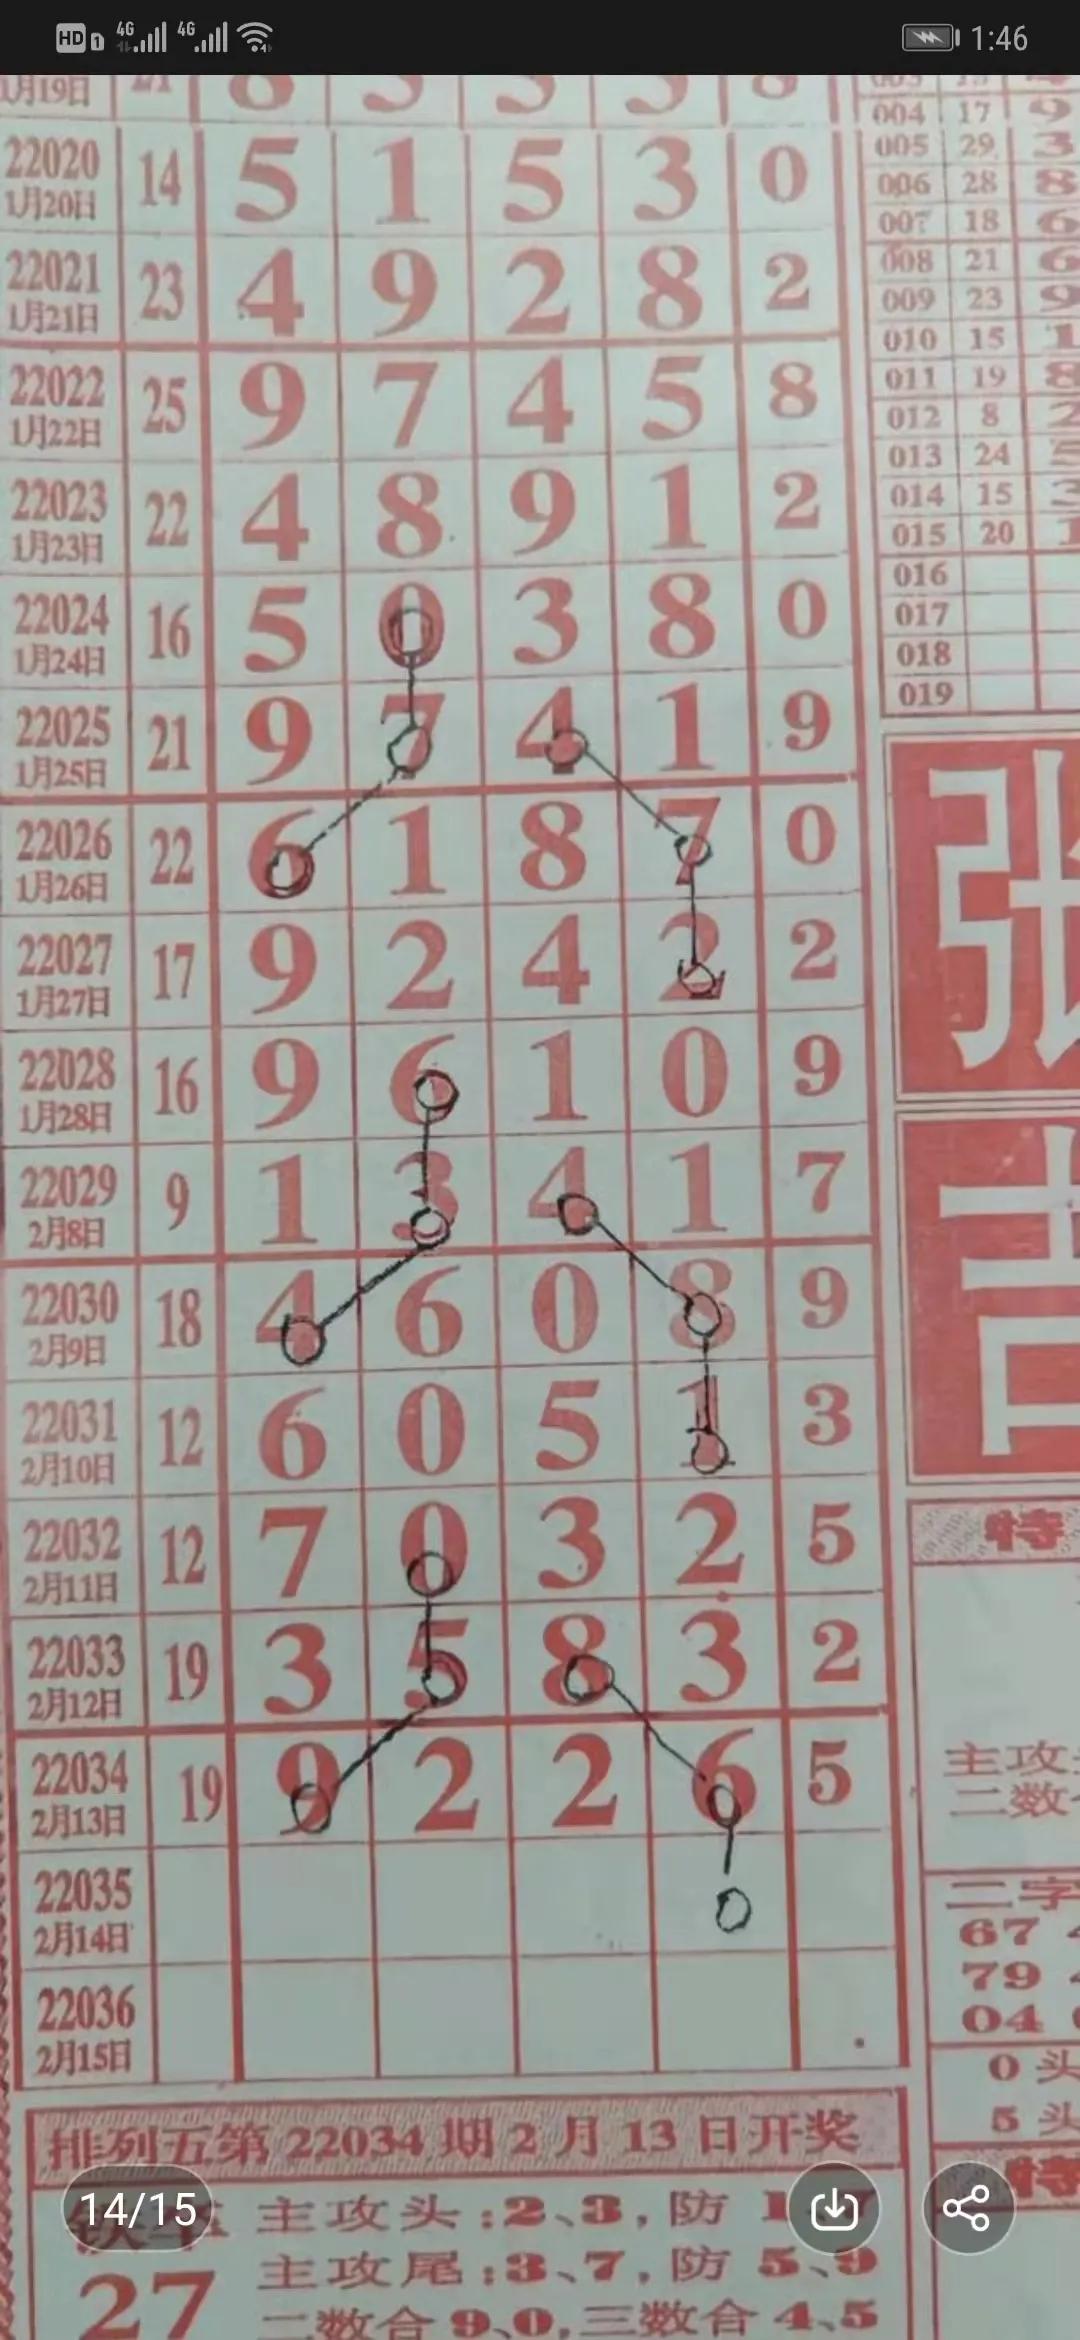 HD 1 4G 4G 1:46
1月19日 21 8 3 3 3 8
004 17 9
22020 14 5 1 5 3 0
1月20日
005 29 3
006 28 8
007 18 6
22021 23 4 9 2 8 2
1月21日
008 21 6
009 23 9
010 15 1
22022 25 9 7 4 5 8
1月22日
011 19 8
012 8 2
013 24 5
22023 22 4 8 9 1 2
1月23日
014 15 3
015 20 1
016
22024 16 5 0 3 8 0
1月24日
017
018
019
22025 21 9 7 4 1 9
1月25日
22026 22 6 1 8 7 0
1月26日
22027 17 9 2 4 2 2
1月27日
22028 16 9 6 1 0 9
1月28日
22029 9 1 3 4 1 7
2月8日
22030 18 4 6 0 8 9
2月9日
22031 12 6 0 5 1 3
2月10日
22032 12 7 0 3 2 5
2月11日
22033 19 3 5 8 3 2
2月12日
22034 19 9 2 2 6 5
2月13日
22035
2月14日
22036
2月15日
张
吉
特
主攻
二数
二字
67
79
04
0头
5头
特
排列五第22034期2月13日开奖
14/15
主攻头:2、3,防1
主攻尾:3、7,防5、9
27
二数合9、0,三数合4、5